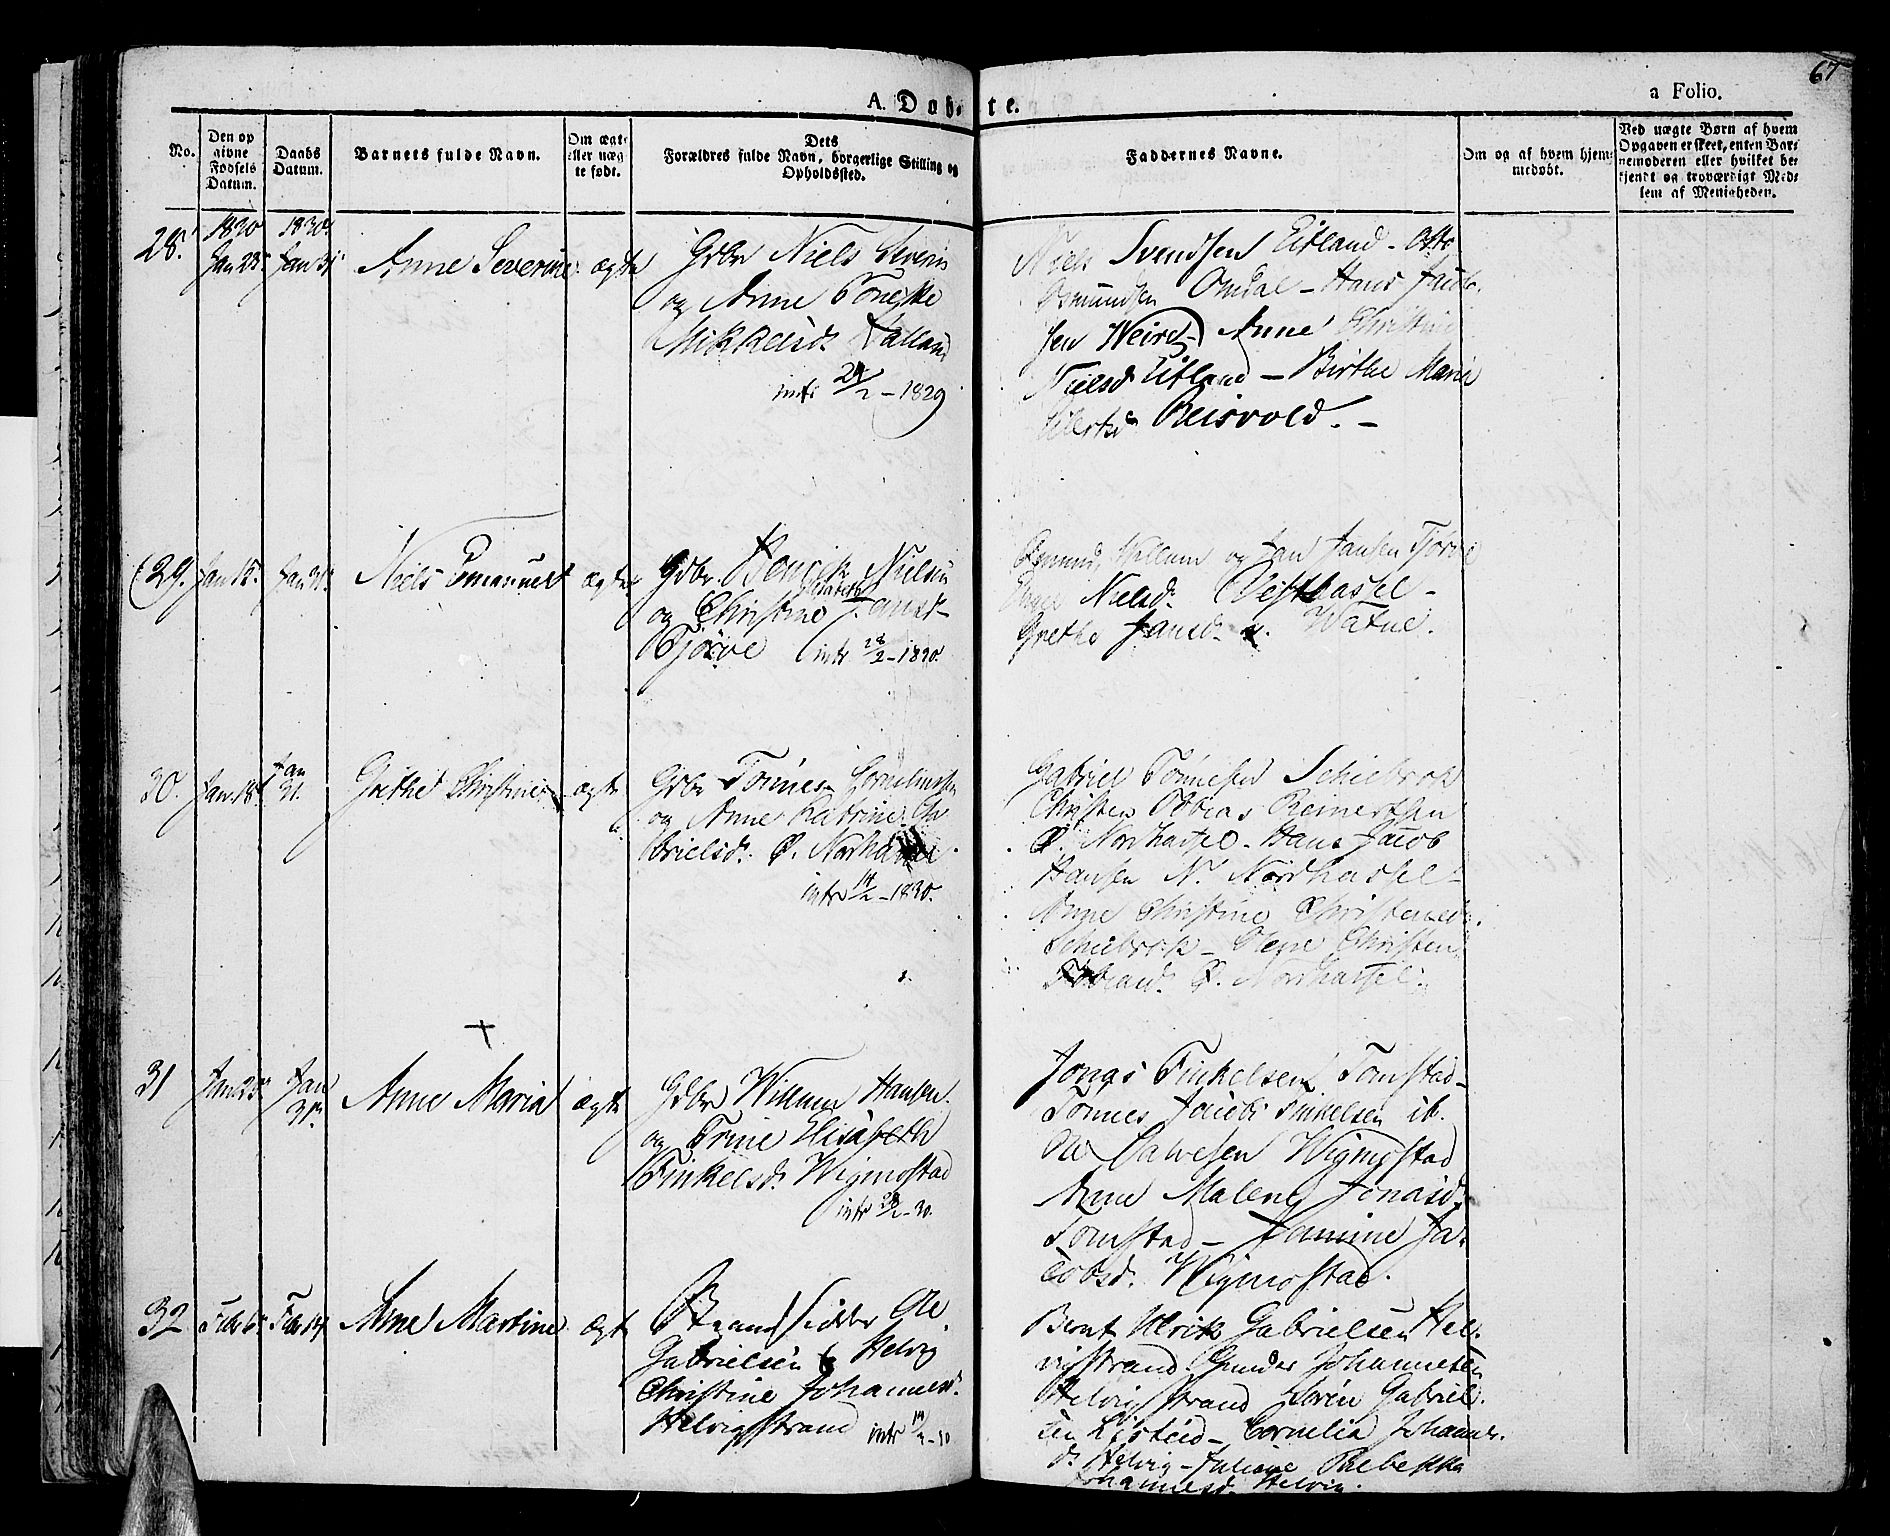 67
A. Dobs
te.
a Folio.
No.
Den op
givne
Fødsels
Datum.
Daabs
Datum.
Barnets fulde Navn.
Om ægte
eller uæg
te født.
Dets
Forældres fulde Navn, borgerlige Stilling og
Opholdssted.
Faddernes Navne.
Om og af hvem hjem
medøbt.
Ved uægte Børn af hvem
Opgaven er skeet, enten Bar
nemoderen eller hvilket be
kjendt og troværdigt Med
lem af Menigheden.
28.
1830
Jan 23
1830.
Jan 31
Anne Severine
ægte
Gdbr Niels Severin
og Anne Tonette
Mikkelsd. Kalland
intr 24/2 - 1829
Niels Svendsen Eitland - Otto
Osmundsen Omdal - Hans Jacob
sen Weire - Anne Christine
Nielsd Eitland - Birthe Marie
Eilertsd Reisvold. -
29.
Jan 15.
Jan 31.
Niels Emanuel
ægte
Gdbr. Berick Nielsen
og Christine Jansd
Tjørve intr 28/2 - 1830.
Osmund, Willum og Jan Jansen Tjørve
Nielsd. Vesthassel -
Grethe Jansd. Watne.
30.
Jan. 18
Jan
31.
Grethe Christine
ægte
Gdbr Tønnes Corneliussen
og Anne Katrine Ga
brielsd. Ø. Norhassel
intr 14/2 - 1830.
Gabriel Tønnesen Schiebrok
Christen Tobias Reinertsen
Ø. Nordhassel - Hans Jacob
Hansen N. Nordhassel -
Anne Christine Christensd.
Schiebrok - Christen
Tobiasd. Ø. Nordhassel.
31
Jan 23
Jan
31.
Anne Maria
ægte
Gdbr Willum Hansen
og Trine Elisabeth
Finkelsd. Wigmostad
intr 28/2 - 30.
Jonas Finkelsen Tomstad -
Tønnes Jacob Finkelsen ib.
Ole Salvesen Wigmostad
Anne Malene Jonasd.
Tomstad - Jamine Ja
cobsd. Wigmostad.
32
Febr 6
Febr 14
Anne Martine
ægte
Strandsidder Ole
Gabrielsen & Helvig
Christine Johannesd.
Helvigstrand intr 14/3 - 30
Bernt Ulrik Gabrielsen Hel
vigstrand Gunder Johannesen
Helvigstrand Søren Gabriel
sen Listeid - Cornelia Johannes
d. Helvig - Juliane Rebekka
Johannesd. Helvig.